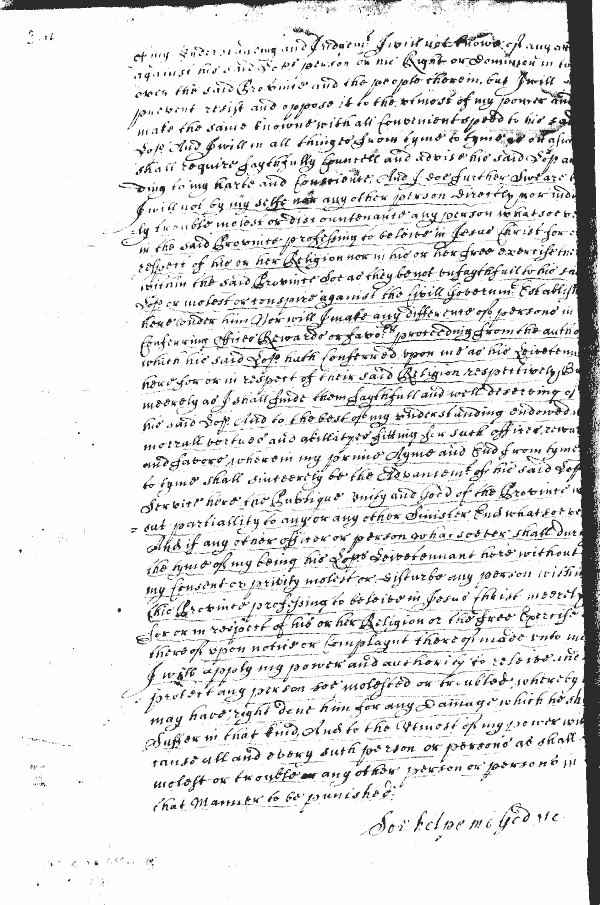 of my Understanding and Judgemt I will not knowe of any att
against his said Lops person or his Right or Dominion in to
over the said Province and the people therein, but I will
prevent resist and oppose it to the utmost of my power and
make the same knowne with all Convenient speed to his said
Lop. And I will in all things from tyme to tyme as
shall require faythfully Councell and advise his said Lop
ding to my harte and Conscience. And I doe further Sweare
I will not by my selfe nor any other person directly nor indi
ly trouble molest or discountenance any person whatsoever
in the said Province professing to beleive in Jesus Christ for
respect of his or her Religion nor in his or her free exercise
within the said Province soe as they be not unfaythfull to his said
Lop or molest or conspire against the sivill Governmt Establish
here under him Nor will I make any difference of persons in
Conferring offices Rewards or favors proceeding from the autho
which his said Lop hath conferred upon me as his Leivetenn
here for or in respect of their said Religion respectively But
meerely as I shall finde them faythfull and well deserving of
his said Lop And to the best of my understanding endowed
morrall vertues and abillityes fitting for such offices rewar
and favors wherein my prime Ayme and End from tyme
to tyme shall sinceerely be the Advancemt of his said Lops
Service here the Publique unity and Good of the Province w
out partiallity to any or any other Sinister End whatsoever
And if any other officer or person whatsoever shall dur
the tyme of my being his Lops Leivetennant here without
my Consent or privity molest or disturbe any person within
this Province professing to beleive in Jesus Christ meerely
for or in respect of his or her Religion or the free Exercise
thereof upon notice or Complaynt thereof made unto me
I will apply my power and authority to releive and
protect any person soe molested or troubled whereby
may have right done him for any Damage which he sh
Suffer in that kind, And to the Utmost of my power will
cause all and every such person or persons as shall
molest or trouble any other person or persons in
that Manner to be punished.
Soe helpe me God &c